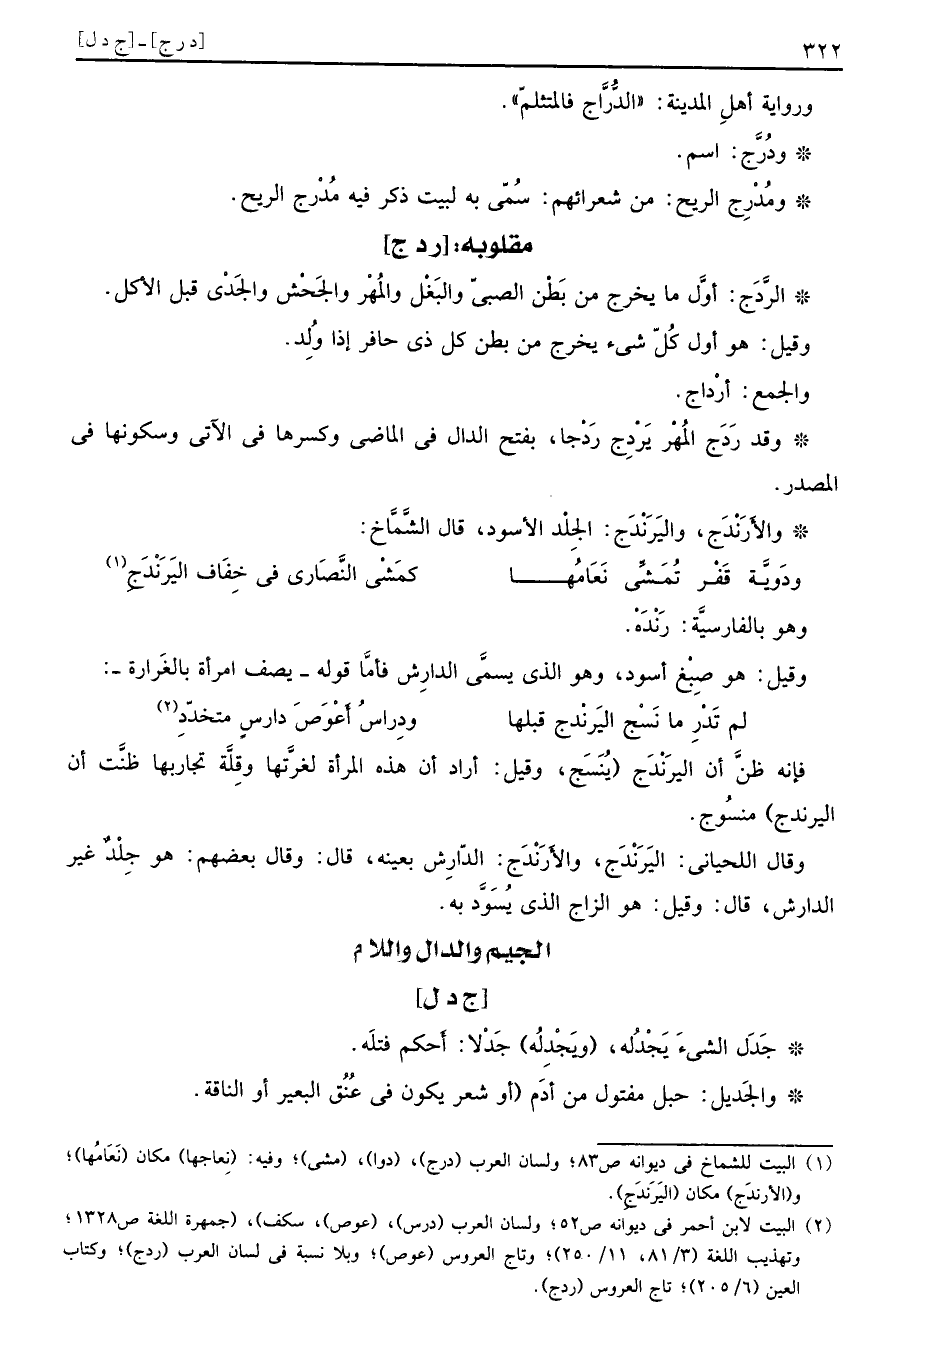 ٣٢٢ [د ر ج] ـ [ج د ل]
ورواية أهلِ المدينة: «الدُّرَّاج فالمتثلمّ».
* ودُرَّج: اسم.
* ومُدْرِج الريح: من شعرائهم: سُمّى به لبيت ذكر فيه مُدْرج الريح.
مقلوبه: [ر د ج]
* الرَّدَج: أوَّل ما يخرج من بَطْن الصبىّ والبَغْل والمُهْر والجَحْش والجَدْى قبل الأكل.
وقيل: هو أول كُلّ شىء يخرج من بطن كل ذى حافر إذا وُلِد.
والجمع: أرْداج.
* وقد رَدَج المُهْر يَرْدِج رَدْجا، بفتح الدال فى الماضى وكسرها فى الآتى وسكونها فى
المصدر.
* والأَرَنْدَج، واليَرَنْدَج: الجِلْد الأسود، قال الشَّمَّاخ:
ودَويَّة قَفْر تُمَشَّى نَعَامُها كمَشْى النَّصَارى فى خِفَاف اليَرَنْدَجِ(١)
وهو بالفارسيَّة: رَنْدَهْ.
وقيل: هو صِبْغ أسود، وهو الذى يسمَّى الدارِش فأمَّا قوله ـ يصف امرأة بالغَرارة ـ:
لم تَدْرِ ما نَسْج اليَرنْدج قبلها ودِراسُ أَعْوَصَ دارسٍ متخدّدِ(٢)
فإنه ظنَّ أن اليرَنْدَج (يُنَسَج، وقيل: أراد أن هذه المرأة لغرتَّها وقِلَّة تجاربها ظنَّت أن
اليرندج) منسُوج.
وقال اللحيانى: اليَرَنْدَج، والأرَنْدَج: الدّارِش بعينه، قال: وقال بعضهم: هو جِلْدٌ غير
الدارش، قال: وقيل: هو الزاج الذى يُسَوَّد به.
الجيم والدال واللام
[ج د ل]
* جَدَل الشىءَ يَجْدُله، (ويَجْدِلُه) جَدْلا: أَحكم فتلَه.
* والجَديل: حبل مفتول من أدَم (أو شعر يكون فى عُنُق البعير أو الناقة.
(١) البيت للشماخ فى ديوانه ص٨٣؛ ولسان العرب (درج)، (دوا)، (مشى)؛ وفيه: (نِعاجها) مكان (نَعَامُها)؛
و(الأرندَج) مكان (اليَرَندَجِ).
(٢) البيت لابن أحمر فى ديوانه ص٥٢؛ ولسان العرب (درس)، (عوص)، سكف)، (جمهرة اللغة ص١٣٢٨؛
وتهذيب اللغة (٣/ ٨١، ١١/ ٢٥٠)؛ وتاج العروس (عوص)؛ وبلا نسبة فى لسان العرب (ردج)؛ وكتاب
العين (٦/ ٢٠٥)؛ تاج العروس (ردج).